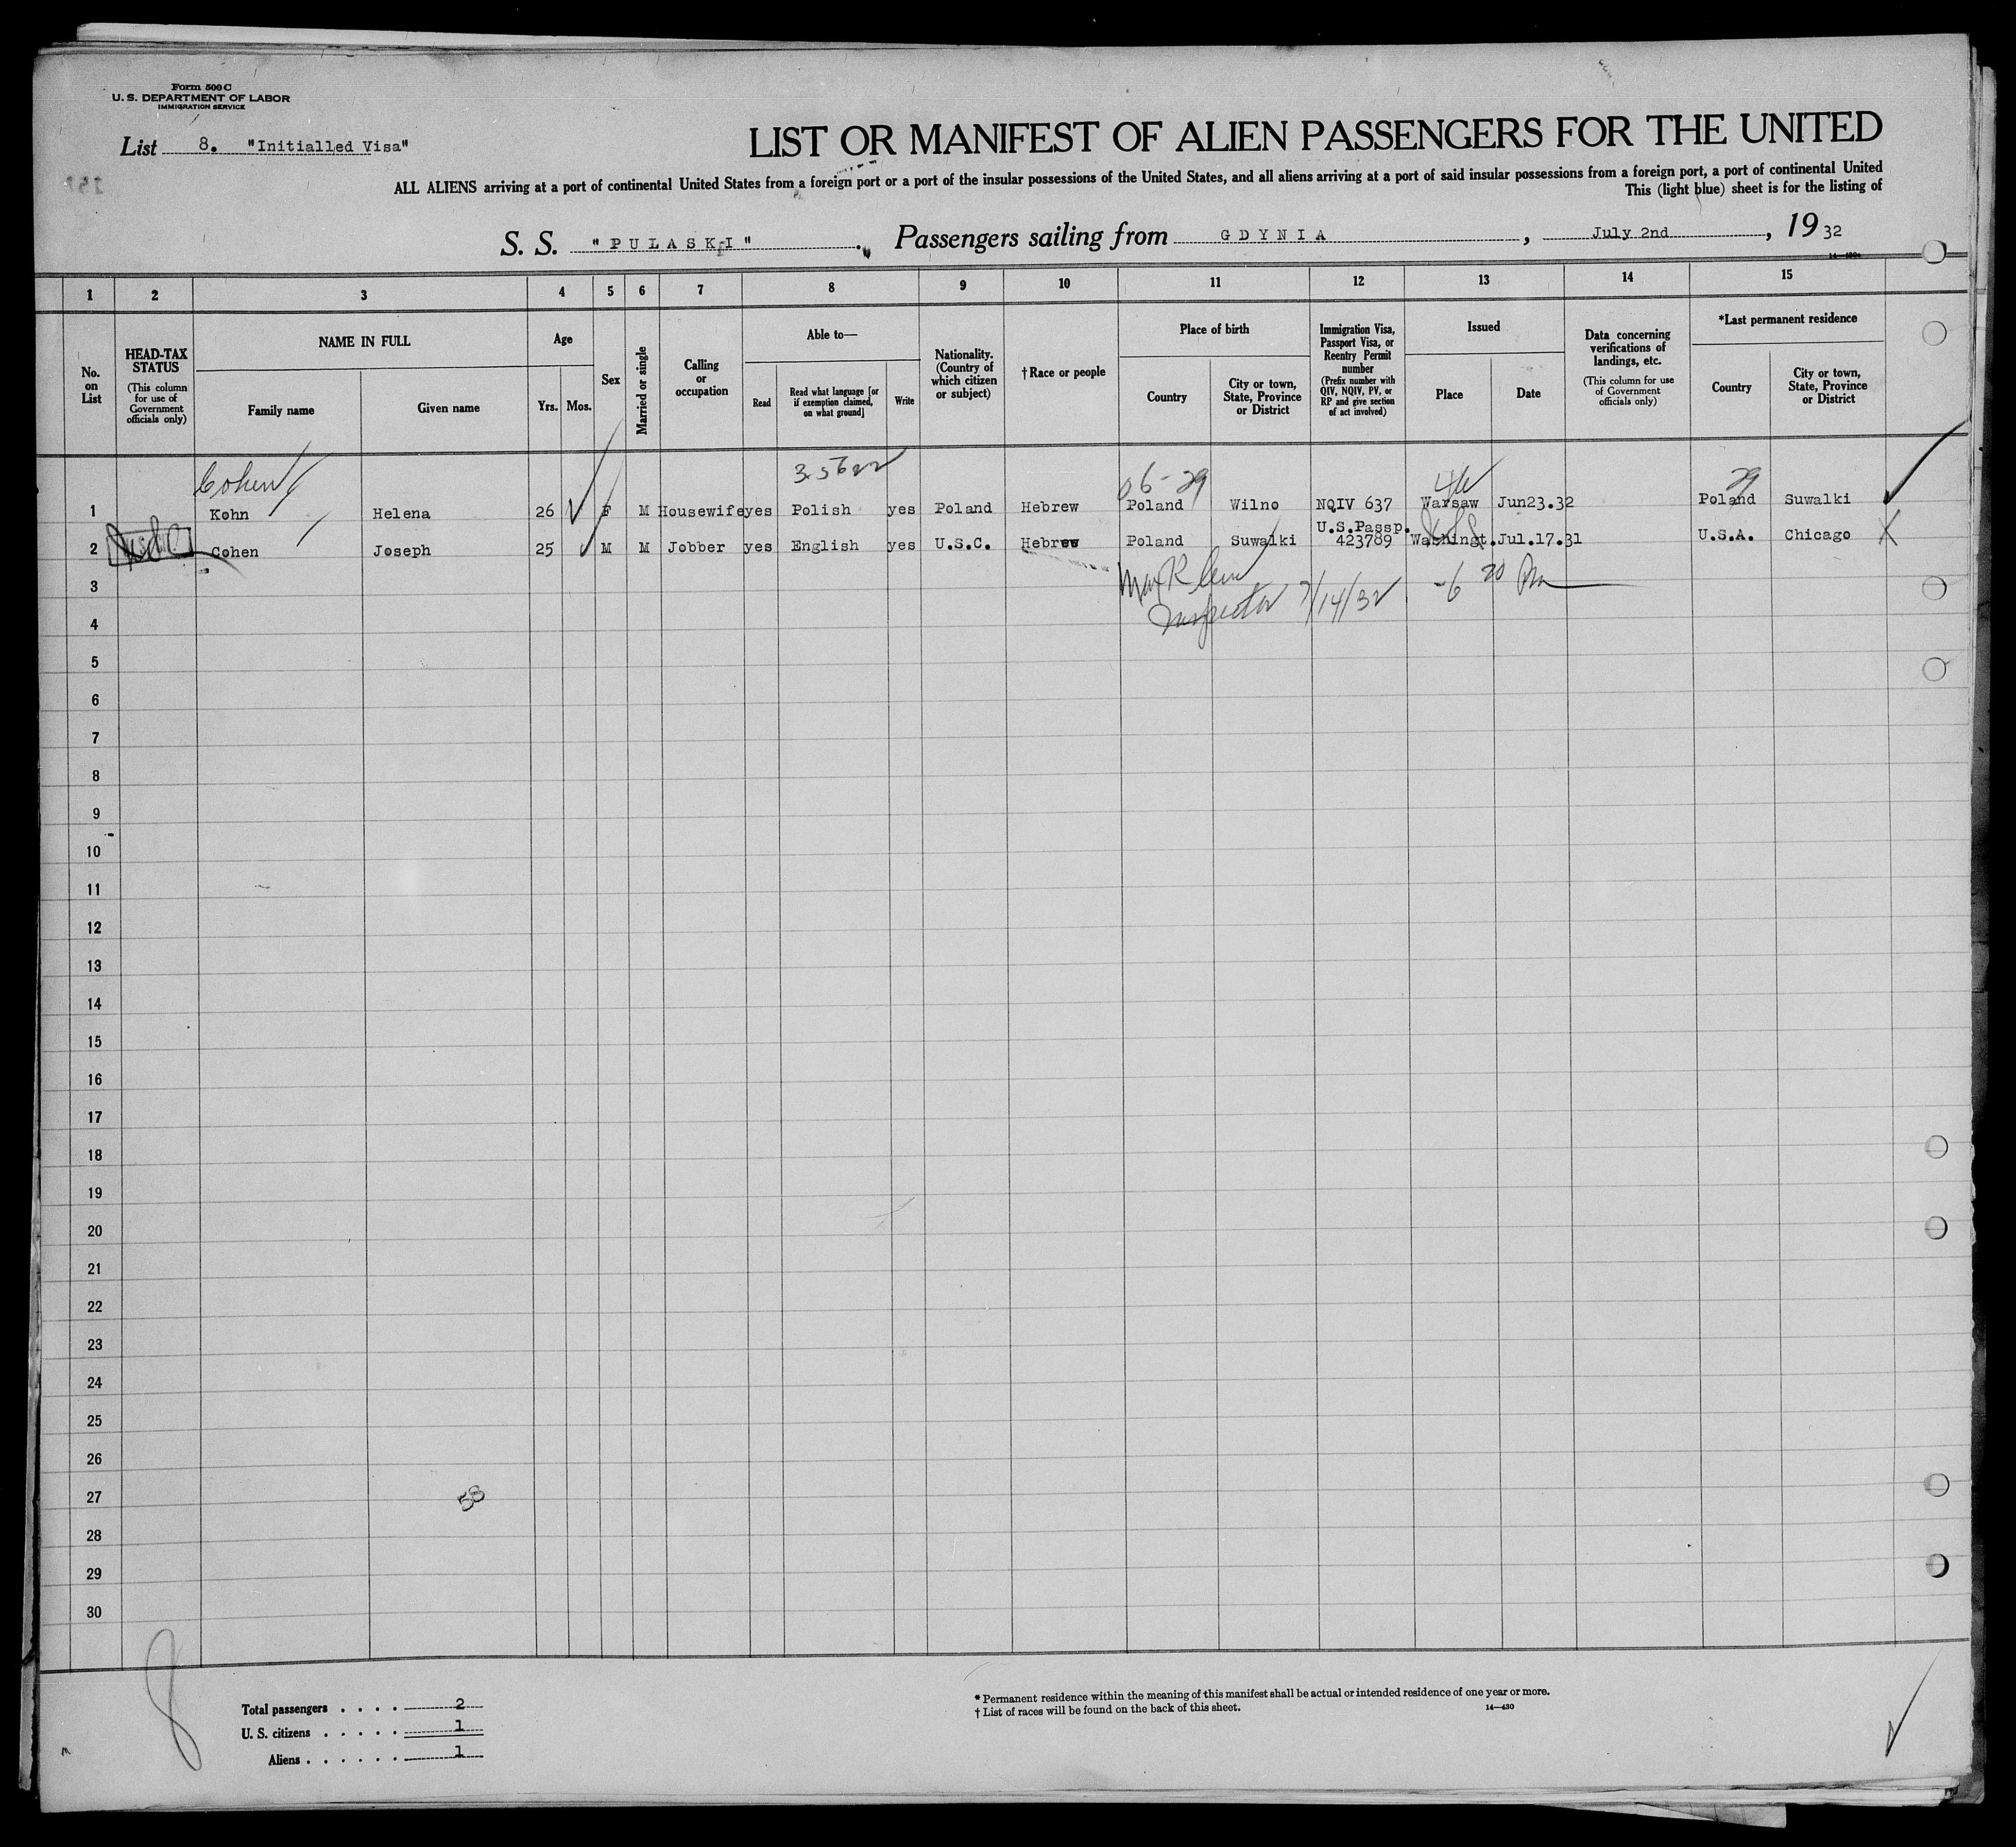 Form 500 C
U. S. DEPARTMENT OF LABOR
IMMIGRATION SERVICE
List 8. "Initialled Visa"
LIST OR MANIFEST OF ALIEN PASSENGERS FOR THE UNITED
ALL ALIENS arriving at a port of continental United States from a foreign port or a port of the insular possessions of the United States, and all aliens arriving at a port of said insular possessions from a foreign port, a port of continental United
This (light blue) sheet is for the listing of
S. S. "PULASKI" Passengers sailing from GDYNIA, July 2nd, 1932
14—430a
1 2 3 4 5 6 7 8 9 10 11 12 13 14 15
No. on List
HEAD-TAX STATUS
(This column for use of Government officials only)
NAME IN FULL
Family name
Given name
Age
Yrs. Mos.
Sex
Married or single
Calling or occupation
Able to—
Read
Read what language [or if exemption claimed, on what ground]
Write
Nationality. (Country of which citizen or subject)
†Race or people
Place of birth
Country
City or town, State, Province or District
Immigration Visa, Passport Visa, or Reentry Permit number
(Prefix number with QIV, NQIV, PV, or RP and give section of act involved)
Issued
Place
Date
Data concerning verifications of landings, etc.
(This column for use of Government officials only)
*Last permanent residence
Country
City or town, State, Province or District
Cohen 35622 06-29 29
1 Kohn Helena 26 F M Housewife yes Polish yes Poland Hebrew Poland Wilno NQIV 637 Warsaw Jun23.32 Poland Suwalki
U.S.Passp.
2 Cohen Joseph 25 M M Jobber yes English yes U.S.C. Hebrew Poland Suwalki 423789 Washingt. Jul.17.31 U.S.A. Chicago
3
Inspector 7/14/32 -6 20 Pm
4
5
6
7
8
9
10
11
12
13
14
15
16
17
18
19
20
21
22
23
24
25
26
27 58
28
29
30
8
Total passengers . . . . 2
U. S. citizens . . . . . 1
Aliens . . . . . . 1
* Permanent residence within the meaning of this manifest shall be actual or intended residence of one year or more.
† List of races will be found on the back of this sheet.
14—430